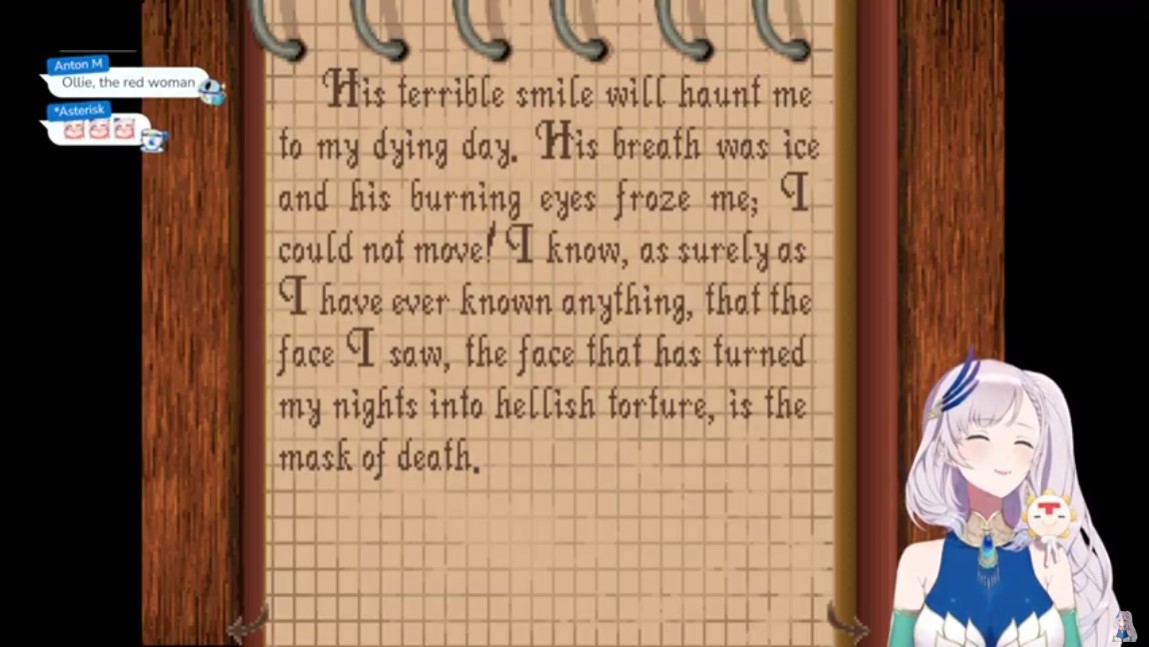 Anton M
Ollie, the red woman
*Asterisk
His terrible smile will haunt me
to my dying day. His breath was ice
and his burning eyes froze me; I
could not move! I know, as surely as
I have ever known anything, that the
face I saw, the face that has turned
my nights into hellish torture, is the
mask of death.
T